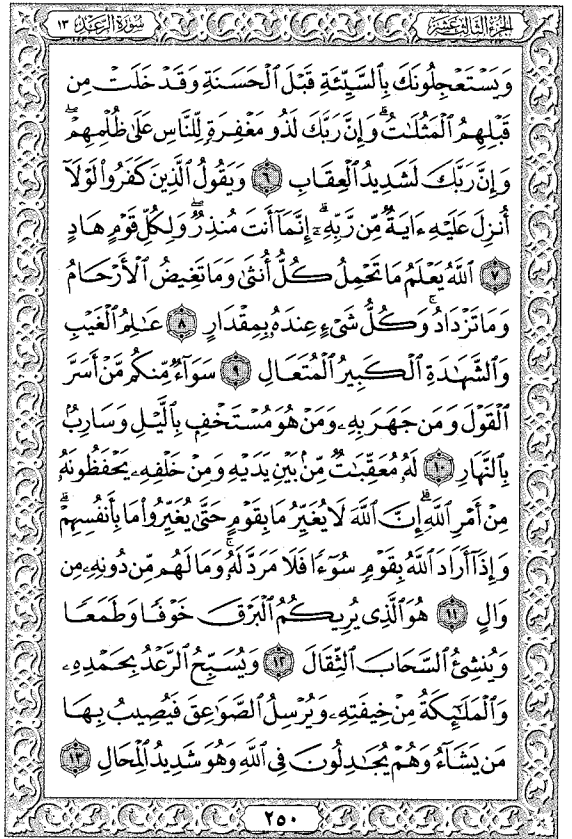 الجزء الثالث عشر
سورة الرعد ١٣
وَيَسْتَعْجِلُونَكَ بِٱلسَّيِّئَةِ قَبْلَ ٱلْحَسَنَةِ وَقَدْ خَلَتْ مِن
قَبْلِهِمُ ٱلْمَثُلَٰتُ ۗ وَإِنَّ رَبَّكَ لَذُو مَغْفِرَةٍ لِّلنَّاسِ عَلَىٰ ظُلْمِهِمْ ۖ
وَإِنَّ رَبَّكَ لَشَدِيدُ ٱلْعِقَابِ ٦ وَيَقُولُ ٱلَّذِينَ كَفَرُوا۟ لَوْلَآ
أُنزِلَ عَلَيْهِ ءَايَةٌ مِّن رَّبِّهِۦٓ ۗ إِنَّمَآ أَنتَ مُنذِرٌ ۖ وَلِكُلِّ قَوْمٍ هَادٍ
٧ ٱللَّهُ يَعْلَمُ مَا تَحْمِلُ كُلُّ أُنثَىٰ وَمَا تَغِيضُ ٱلْأَرْحَامُ
وَمَا تَزْدَادُ ۖ وَكُلُّ شَىْءٍ عِندَهُۥ بِمِقْدَارٍ ٨ عَٰلِمُ ٱلْغَيْبِ
وَٱلشَّهَٰدَةِ ٱلْكَبِيرُ ٱلْمُتَعَالِ ٩ سَوَآءٌ مِّنكُم مَّنْ أَسَرَّ
ٱلْقَوْلَ وَمَن جَهَرَ بِهِۦ وَمَنْ هُوَ مُسْتَخْفٍۭ بِٱلَّيْلِ وَسَارِبٌۢ
بِٱلنَّهَارِ ١٠ لَهُۥ مُعَقِّبَٰتٌ مِّنۢ بَيْنِ يَدَيْهِ وَمِنْ خَلْفِهِۦ يَحْفَظُونَهُۥ
مِنْ أَمْرِ ٱللَّهِ ۗ إِنَّ ٱللَّهَ لَا يُغَيِّرُ مَا بِقَوْمٍ حَتَّىٰ يُغَيِّرُوا۟ مَا بِأَنفُسِهِمْ ۗ
وَإِذَآ أَرَادَ ٱللَّهُ بِقَوْمٍ سُوٓءًا فَلَا مَرَدَّ لَهُۥ ۚ وَمَا لَهُم مِّن دُونِهِۦ مِن
وَالٍ ١١ هُوَ ٱلَّذِى يُرِيكُمُ ٱلْبَرْقَ خَوْفًا وَطَمَعًا
وَيُنشِئُ ٱلسَّحَابَ ٱلثِّقَالَ ١٢ وَيُسَبِّحُ ٱلرَّعْدُ بِحَمْدِهِۦ
وَٱلْمَلَٰٓئِكَةُ مِنْ خِيفَتِهِۦ وَيُرْسِلُ ٱلصَّوَٰعِقَ فَيُصِيبُ بِهَا
مَن يَشَآءُ وَهُمْ يُجَٰدِلُونَ فِى ٱللَّهِ وَهُوَ شَدِيدُ ٱلْمِحَالِ ١٣
٢٥٠